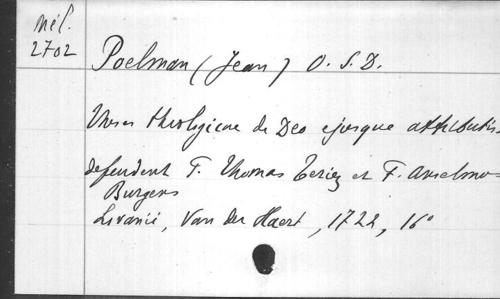 Mél.
2702
Poelman (Jean) O. S. D.
Theses theologicae de Deo ejusque attributis
defendent F. Thomas et F. Anselmo
Burgers
Lovanii, Van der Haert, 1722, 16°